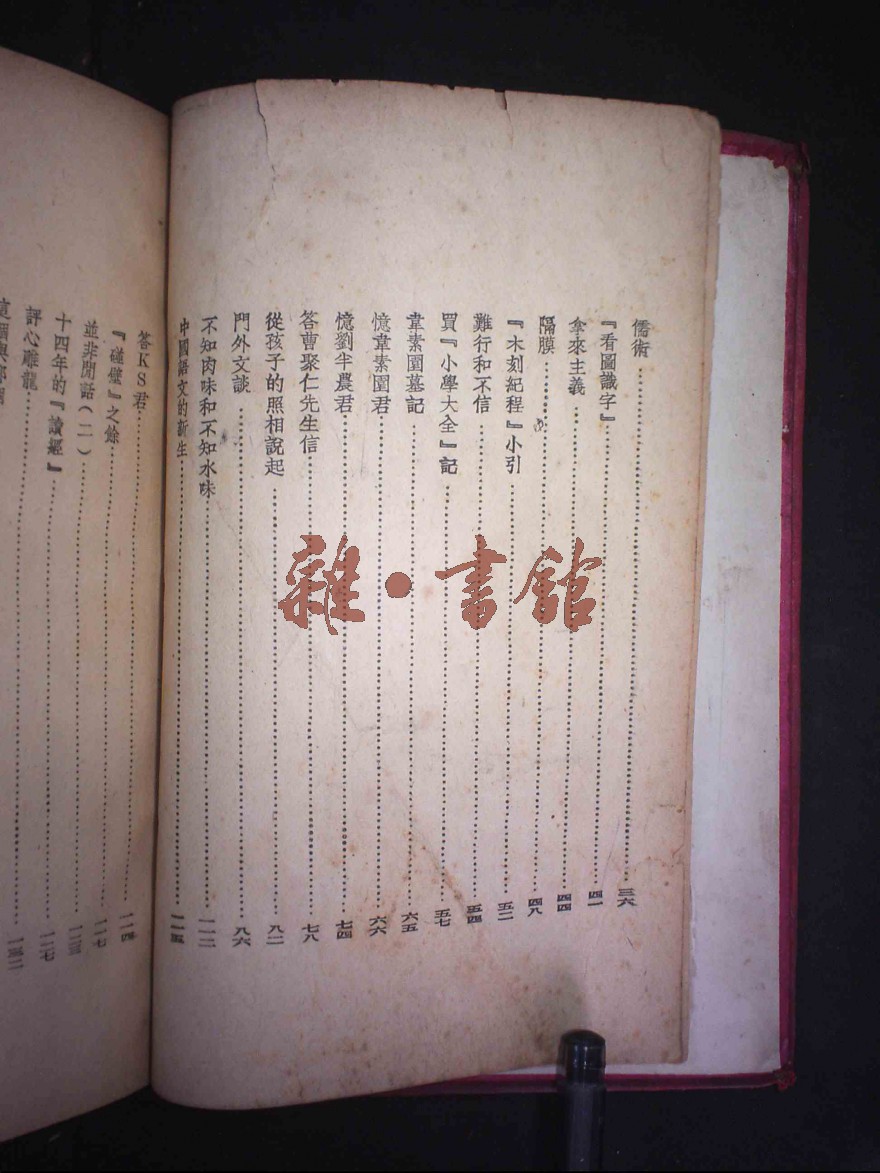 儒術……三六
『看圖識字』……四一
拿來主義……四四
隔膜……四八
『木刻紀程』小引……五二
難行和不信……五四
買『小學大全』記……五七
韋素園墓記……六五
憶韋素園君……六六
憶劉半農君……七四
答曹聚仁先生信……七八
從孩子的照相說起……八二
門外文談……八六
不知肉味和不知水味……一一二
中國語文的新生……一一五
答KS君……一一四
『碰壁』之餘……一一七
並非閒話(二)……一二三
十四年的『讀經』……一二七
評心雕龍……一三二
雜·書館